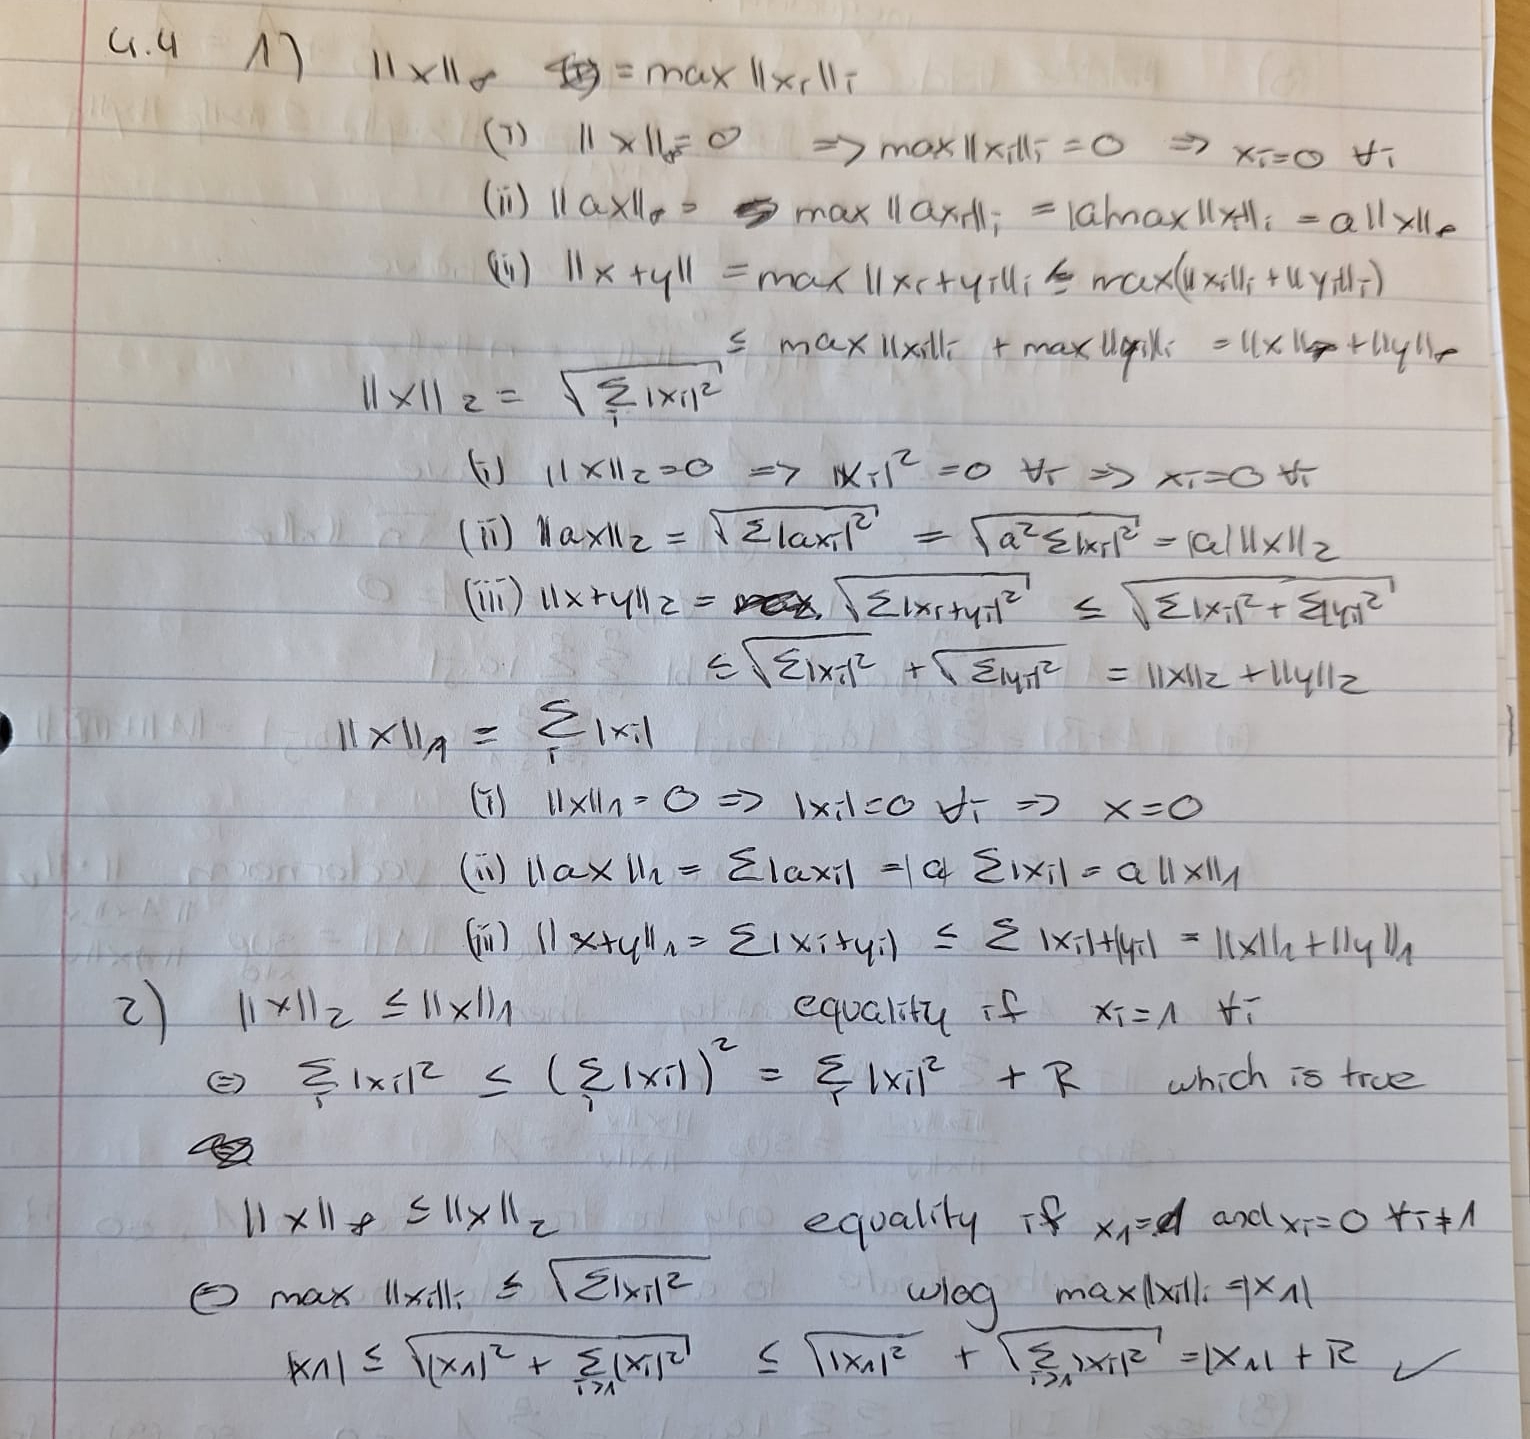 4.4 1) ||x||∞ = max ||xi||i
(i) ||x||∞ = 0 => max ||xi||i = 0 => xi=0 ∀i
(ii) ||ax||∞ = max ||axi||i = |a| max ||xi||i = a ||x||∞
(iii) ||x+y|| = max ||xi+yi||i ≤ max(||xi||i + ||yi||i)
≤ max ||xi||i + max ||yi||i = ||x||∞ + ||y||∞
||x||2 = √(Σi |xi|²)
(i) ||x||2=0 => |xi|² = 0 ∀i => xi=0 ∀i
(ii) ||ax||2 = √(Σ|axi|²) = √(a² Σ|xi|²) = |a| ||x||2
(iii) ||x+y||2 = √(Σ|xi+yi|²) ≤ √(Σ|xi|² + Σ|yi|²)
≤ √(Σ|xi|²) + √(Σ|yi|²) = ||x||2 + ||y||2
||x||1 = Σi |xi|
(i) ||x||1 = 0 => |xi|=0 ∀i => x=0
(ii) ||ax||1 = Σ|axi| = |a| Σ|xi| = a ||x||1
(iii) ||x+y||1 = Σ|xi+yi| ≤ Σ |xi|+|yi| = ||x||1 + ||y||1
2) ||x||2 ≤ ||x||1 equality if xi=1 ∀i
⇔ Σi |xi|² ≤ (Σi |xi|)² = Σi |xi|² + R which is true
||x||∞ ≤ ||x||2 equality if x1=1 and xi=0 ∀i≠1
⇔ max ||xi||i ≤ √(Σ|xi|²) wlog max||xi||i = |x1|
|x1| ≤ √(|x1|² + Σi>1 |xi|²) ≤ √(|x1|²) + √(Σi>1 |xi|²) = |x1| + R ✓